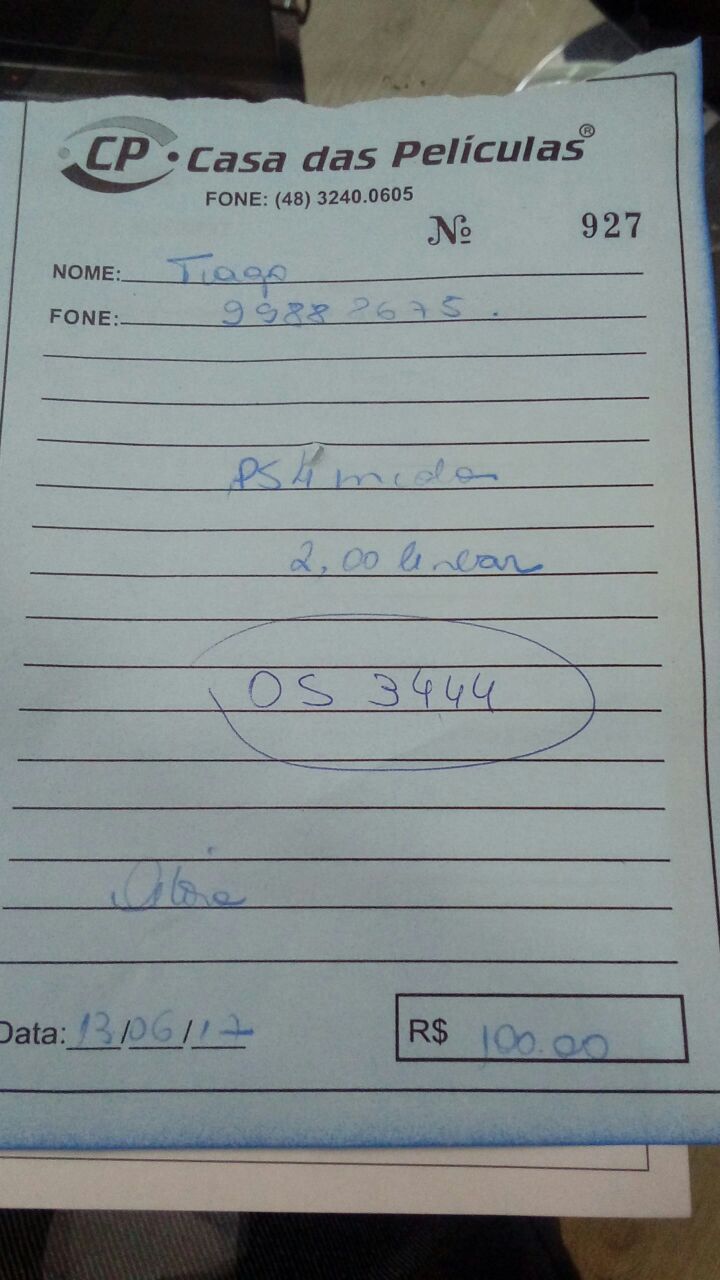 CP • Casa das Películas ®
FONE: (48) 3240.0605
Nº 927
NOME: Tiago
FONE: 99882675.
PS4
2,00 linear
OS 3444
Data: 13/06/17
R$ 100.00